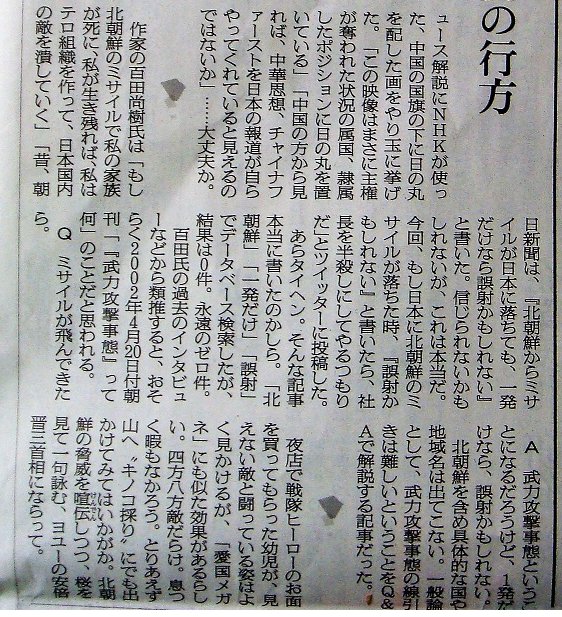 の行方
ュース解説にNHKが使っ
た、中国の国旗の下に日の丸
を配した画をやり玉に挙げ
た。「この映像はまさに主権
が奪われた状況の属国、隷属
したポジションに日の丸を置
いている」「中国の方から見
れば、中華思想、チャイナフ
ァーストを日本の報道が自ら
やってくれていると見えるの
ではないか」……大丈夫か。
作家の百田尚樹氏は「もし
北朝鮮のミサイルで私の家族
が死に、私が生き残れば、私は
テロ組織を作って、日本国内
の敵を潰していく」「昔、朝
日新聞は、『北朝鮮からミサ
イルが日本に落ちても、一発
だけなら誤射かもしれない』
と書いた。信じられないかも
しれないが、これは本当だ。
今回、もし日本に北朝鮮のミ
サイルが落ちた時、『誤射か
もしれない』と書いたら、社
長を半殺しにしてやるつもり
だ」とツイッターに投稿した。
あらタイヘン。そんな記事
本当に書いたのかしら。「北
朝鮮」「一発だけ」「誤射」
でデータベース検索したが、
結果は0件。永遠のゼロ件。
百田氏の過去のインタビュ
ーなどから類推すると、おそ
らく2002年4月20日付朝
刊「『武力攻撃事態』って
何」のことだと思われる。
Q ミサイルが飛んできた
ら。
A 武力攻撃事態というこ
とになるだろうけど、1発だ
けなら、誤射かもしれない。
北朝鮮を含め具体的な国や
地域名は出てこない。一般論
として、武力攻撃事態の線引
きは難しいということをQ&
Aで解説する記事だった。
夜店で戦隊ヒーローのお面
を買ってもらった幼児が、見
えない敵と闘っている姿はよ
く見かけるが、「愛国メガ
ネ」にも似た効果があるらし
い。四方八方敵だらけ。息つ
く暇もなかろう。とりあえず
山へ〝キノコ採り〟にでも出
かけてみてはいかがか。北朝
鮮の脅威を喧伝しつつ、桜を
見て一句詠む、ヨユーの安倍
晋三首相にならって。